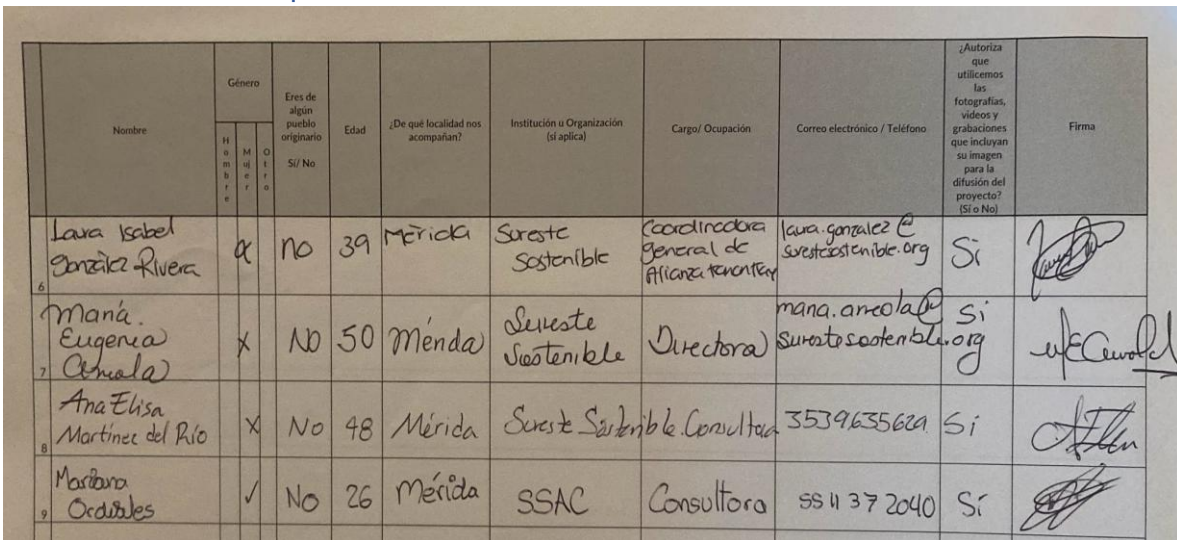 Nombre
Género
Hombre
Mujer
Otro
Eres de algún pueblo originario
Sí/ No
Edad
¿De qué localidad nos acompañan?
Institución u Organización
(si aplica)
Cargo/ Ocupación
Correo electrónico / Teléfono
¿Autoriza que utilicemos las fotografías, videos y grabaciones que incluyan su imagen para la difusión del proyecto? (Sí o No)
Firma
6 Laura Isabel González Rivera x no 39 Mérida Sureste Sostenible Coordinadora general de Alianza laura.gonzalez@surestesostenible.org Si
7 María Eugenia Arreola x No 50 Mérida Sureste Sostenible Directora maria.arreola@surestesostenible.org Si
8 Ana Elisa Martínez del Río x No 48 Mérida Sureste Sostenible Consultora 3539635629 Si
9 Mariana ✓ No 26 Mérida SSAC Consultora 55 11 37 2040 Sí